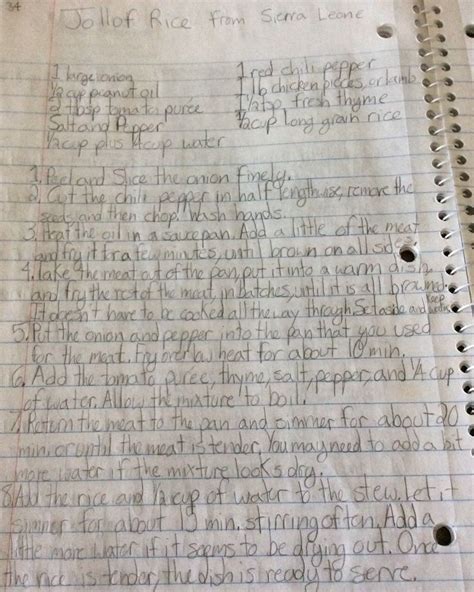 34
Jollof Rice from Sierra Leone
1 large onion
1 red chili pepper
½ cup peanut oil
1 lb chicken pieces, or lamb
tbsp tomato puree
½ tsp fresh thyme
Salt and Pepper
½ cup long grain rice
½ cup plus ¼ cup water
1. Peel and Slice the onion finely.
2. Cut the chili pepper in half lengthwise, remove the
seeds, and then chop. Wash hands.
3. Heat the oil in a saucepan. Add a little of the meat
and fry it for a few minutes, until brown on all sides
4. Take the meat out of the pan, put it into a warm dish,
and fry the rest of the meat in batches, until it is all browned
It doesn't have to be cooked all the way through. Set aside and Keep
5. Put the onion and pepper into the pan that you used
for the meat. Fry over low heat for about 10 min.
6. Add the tomato puree, thyme, salt, pepper, and ¼ cup
of water. Allow the mixture to boil.
7. Return the meat to the pan and simmer for about 20
min. or until the meat is tender. You may need to add a bit
more water if the mixture looks dry.
8. Add the rice and ½ cup of water to the stew. Let it
simmer for about 15 min, stirring often. Add a
little more water if it seems to be drying out. Once
the rice is tender, the dish is ready to serve.